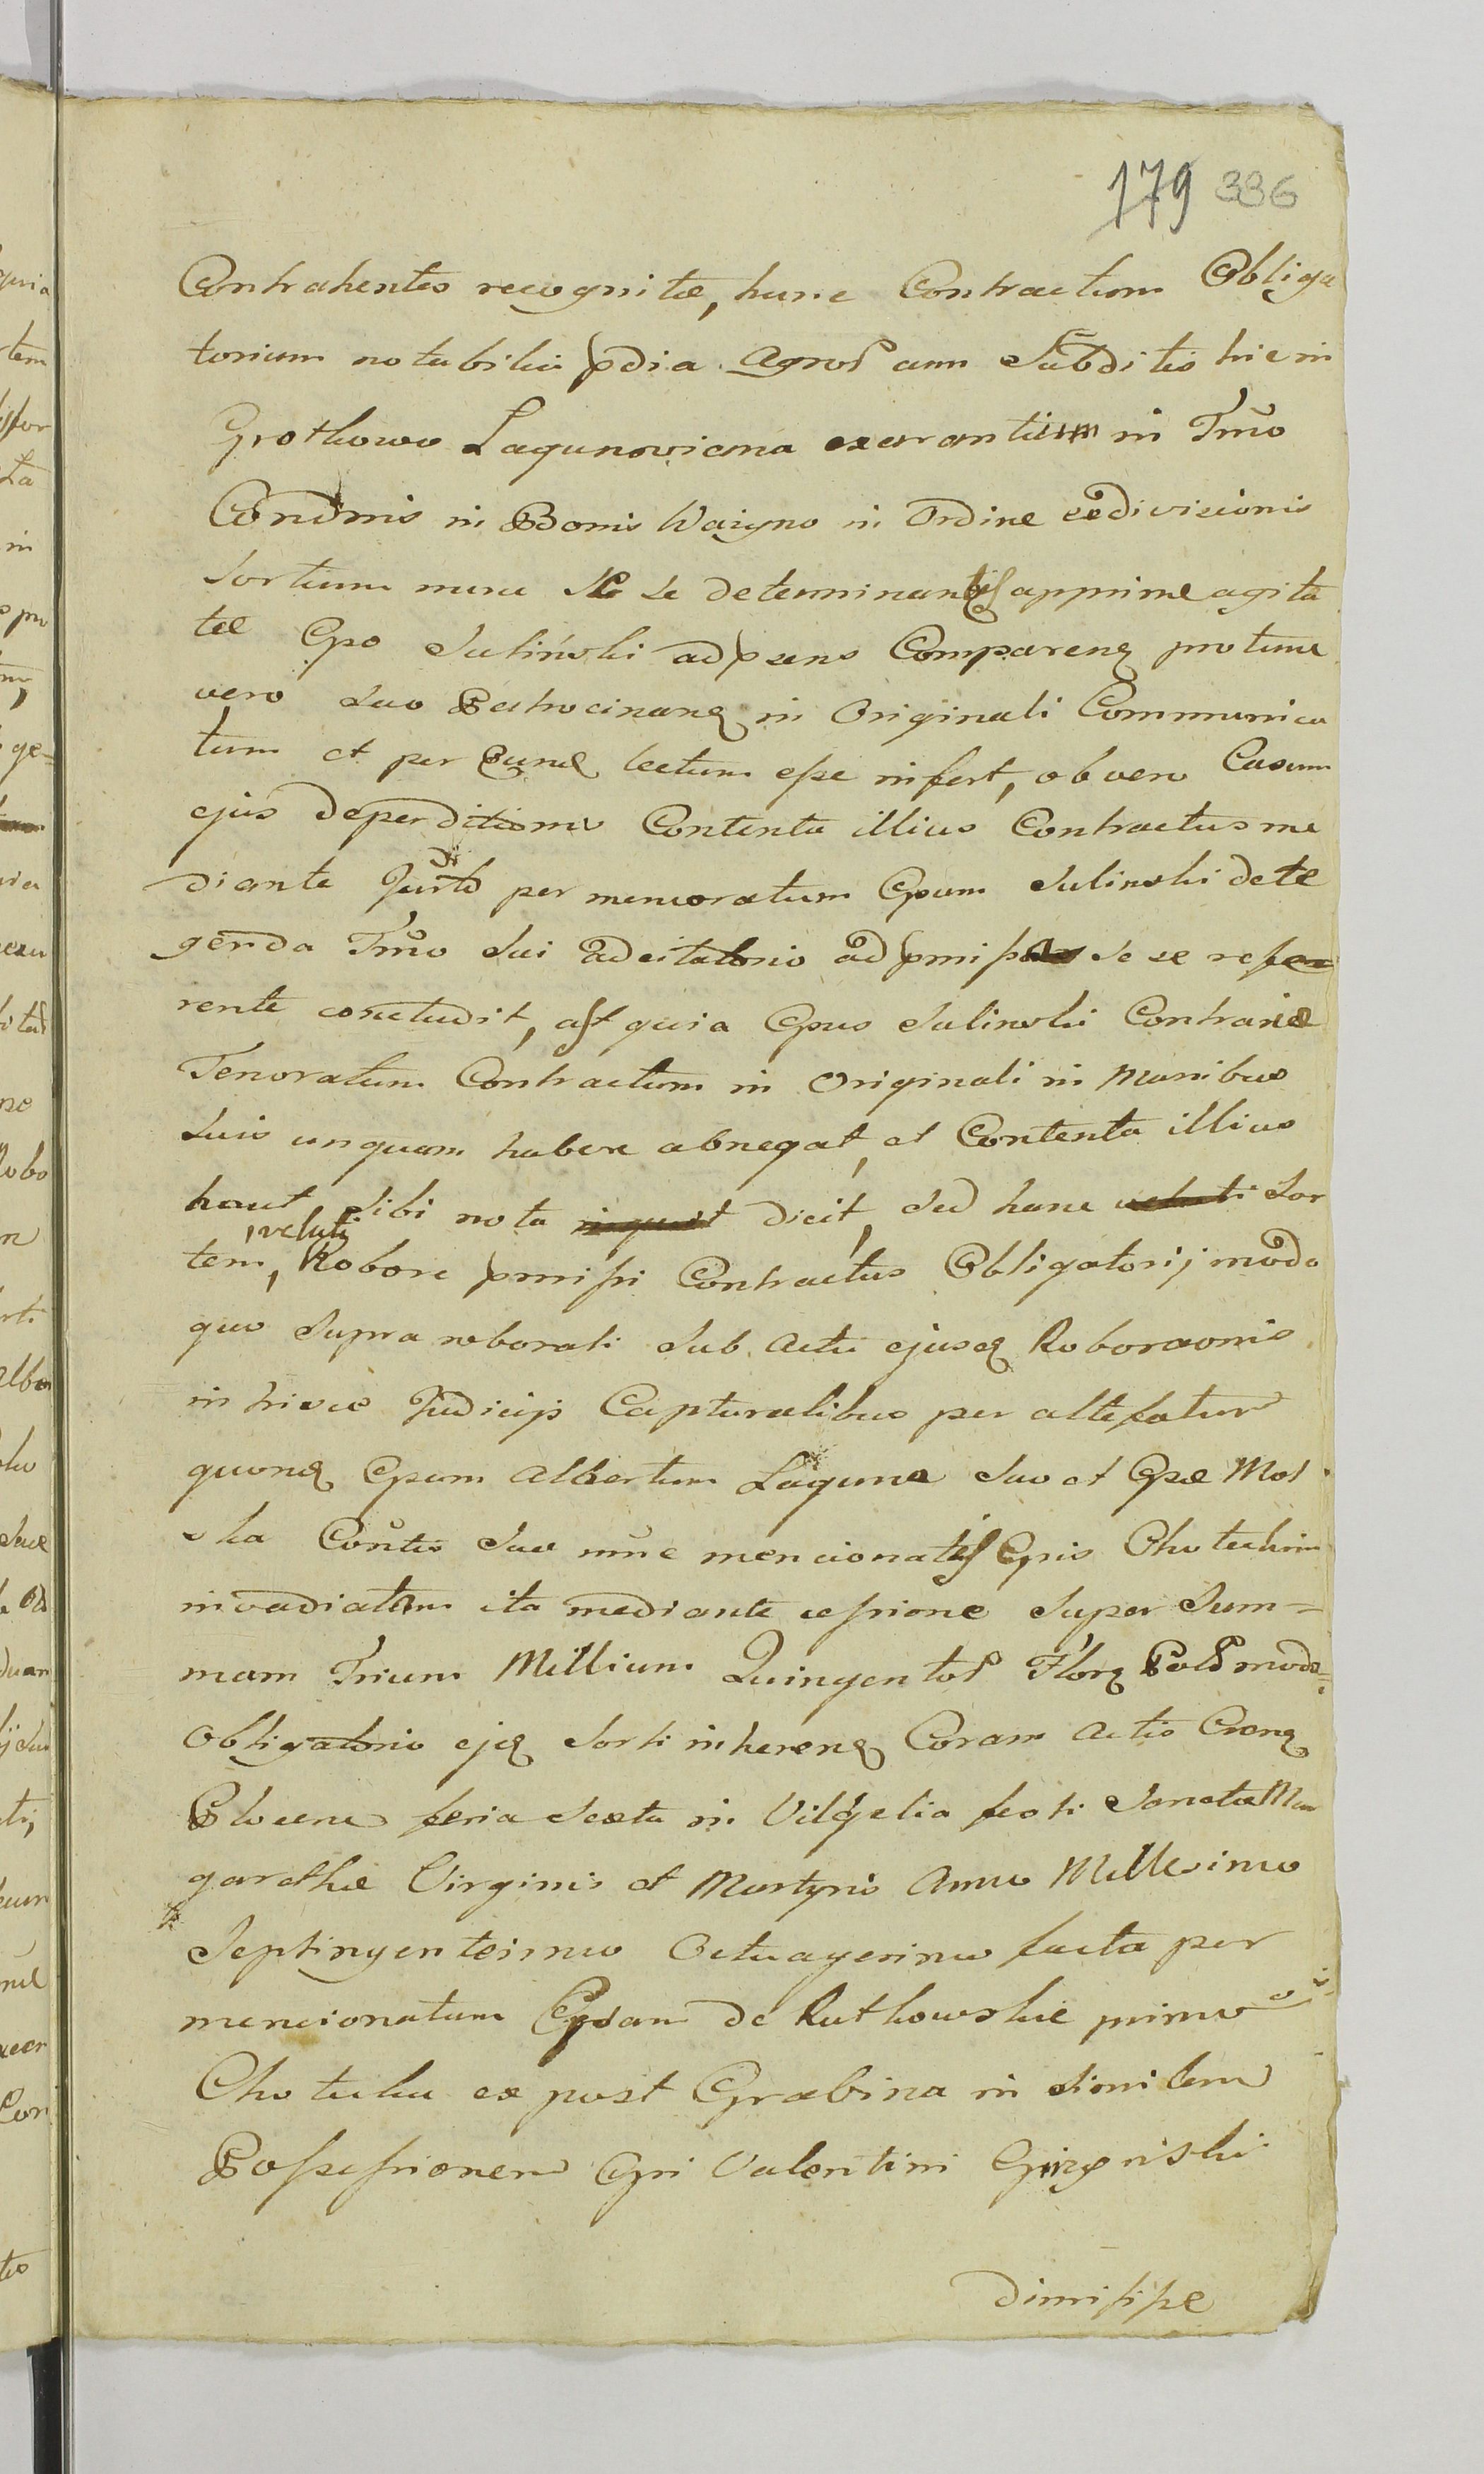 179 336
Contrahentes recognitæ, hunc Contractum Obliga
torium notabilia pdia Agror cum Subditis hic in
Grotkowo Lagunoviana exarantium in Tmo
Condnis in Bonis Waizno in Ordine condivisionis
Sortium nunc se se determinantis apprime agita
tæ Gso Sulinski adpsens Comparenq protunc
vero suo Patrocinanq in Originali Communica
tum et per Eund lectum esse infert, ob vero Casum
ejus deperditionis Contenta illius Contractus me
diante Jurto per memoratum Gsum Sulinski dete
genda Tmo sui adcitatorio ad pmissa se se refe
rente concludit, ast quia Gsus Sulinski Contrariæ
Tenoratum Contractum in Originali in Manibus
suis unquam habere abnegat, et Contenta illius
haut sibi nota dicit, sed hanc Sor
veluti
tem, Robore pmissi Contractus Obligatorij modo
quo supra roborati sub Actu ejusq Roboraonis
in hisce Judicijs Capturalibus per altefatum
quonq Gsum Albertum Laguna suo et Gsæ Mol
ska Contis suæ nunc mencionatis Gsis Chotuckim
invadiatam ita mediante cessione super Sum=
mam Trium Millium Quingentor Flor Pol modo
Obligatorio ejq Sorti inherenq Coram Actis Cæ
Plocen feria Sexta in Vilgelia festi Sanctæ Mar
garethæ Virginis et Martyris Anno Millesimo
Septingentesimo Octuagesimo facta per
mencionatam Gsam de Rutkowskie primo
Chotucka ex post Grabina in similem
Possessionem Gsi Valentini
dimisisse